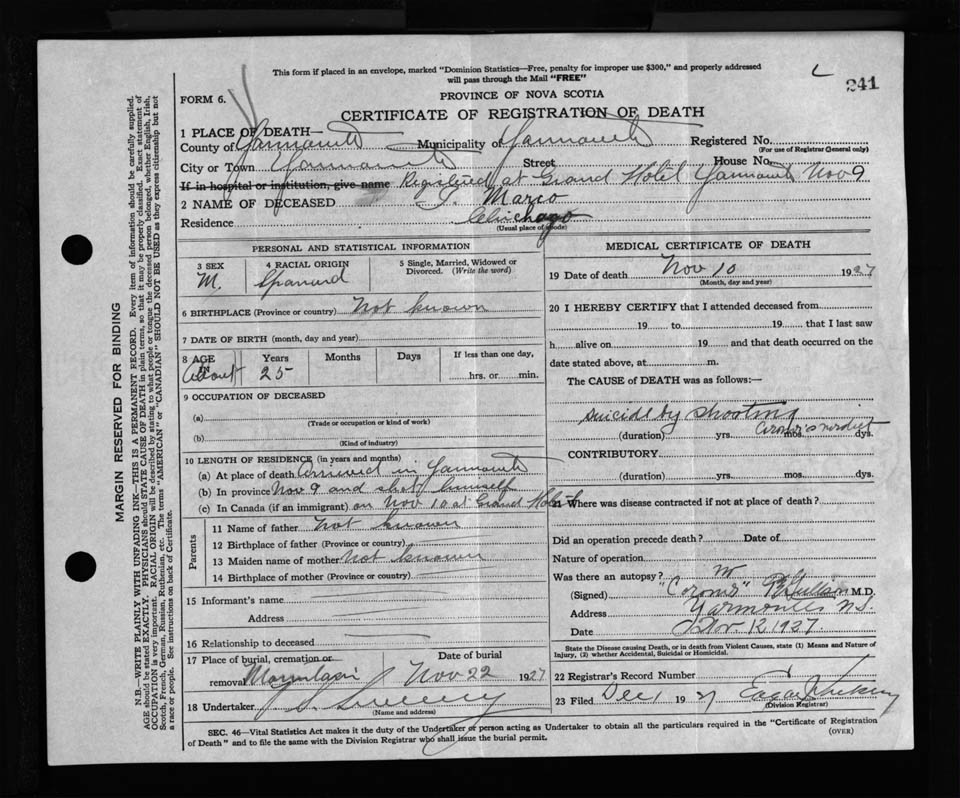 This form if placed in an envelope, marked "Dominion Statistics—Free, penalty for improper use $300," and properly addressed
will pass through the Mail "FREE"
241
FORM 6.
PROVINCE OF NOVA SCOTIA
CERTIFICATE OF REGISTRATION OF DEATH
1 PLACE OF DEATH—
County of Yarmouth Municipality of Yarmouth Registered No.
(For use of Registrar General only)
City or Town Yarmouth Street House No.
If in hospital or institution, give name Registered at Grand Hotel Yarmouth Nov 9
2 NAME OF DECEASED Marco
Residence Chicago
(Usual place of abode)
PERSONAL AND STATISTICAL INFORMATION
3 SEX 4 RACIAL ORIGIN 5 Single, Married, Widowed or
Divorced. (Write the word)
M. Spaniard
6 BIRTHPLACE (Province or country) Not known
7 DATE OF BIRTH (month, day and year)
8 AGE Years Months Days If less than one day,
About 25 hrs. or min.
9 OCCUPATION OF DECEASED
(a)
(Trade or occupation or kind of work)
(b)
(Kind of industry)
10 LENGTH OF RESIDENCE (in years and months)
(a) At place of death Arrived in Yarmouth
(b) In province Nov 9 and shot himself
(c) In Canada (if an immigrant) on Nov 10 at Grand Hotel
Parents
11 Name of father Not known
12 Birthplace of father (Province or country)
13 Maiden name of mother Not known
14 Birthplace of mother (Province or country)
15 Informant's name
Address
16 Relationship to deceased
17 Place of burial, cremation or Date of burial
removal Nov 22 1927
18 Undertaker Sweeny
(Name and address)
MEDICAL CERTIFICATE OF DEATH
19 Date of death Nov 10 1927
(Month, day and year)
20 I HEREBY CERTIFY that I attended deceased from
19 to 19 that I last saw
h alive on 19 and that death occurred on the
date stated above, at m.
The CAUSE of DEATH was as follows:—
suicide by shooting
Coroner's verdict
(duration) yrs. mos. dys.
CONTRIBUTORY
(duration) yrs. mos. dys.
21 Where was disease contracted if not at place of death?
Did an operation precede death? Date of
Nature of operation
Was there an autopsy?
(Signed) "Coroner" M.D.
Address Yarmouth N.S.
Date Nov. 12 1927
State the Disease causing Death, or in death from Violent Causes, state (1) Means and Nature of
Injury, (2) whether Accidental, Suicidal or Homicidal.
22 Registrar's Record Number
23 Filed Dec 1 1927
(Division Registrar)
SEC. 46—Vital Statistics Act makes it the duty of the Undertaker or person acting as Undertaker to obtain all the particulars required in the "Certificate of Registration
of Death" and to file the same with the Division Registrar who shall issue the burial permit.
(OVER)
MARGIN RESERVED FOR BINDING
N.B.—WRITE PLAINLY WITH UNFADING INK—THIS IS A PERMANENT RECORD. Every item of information should be carefully supplied.
AGE should be stated EXACTLY. PHYSICIANS should STATE CAUSE OF DEATH in plain terms, so that it may be properly classified. Exact statement of
OCCUPATION is very important. RACIAL ORIGIN will be described by stating to what people or tongue the deceased person belonged, whether English, Irish,
Scotch, French, German, Russian, Ruthenian, etc. The terms "AMERICAN" or "CANADIAN" SHOULD NOT BE USED as they express citizenship but not
a race or people. See instructions on back of Certificate.